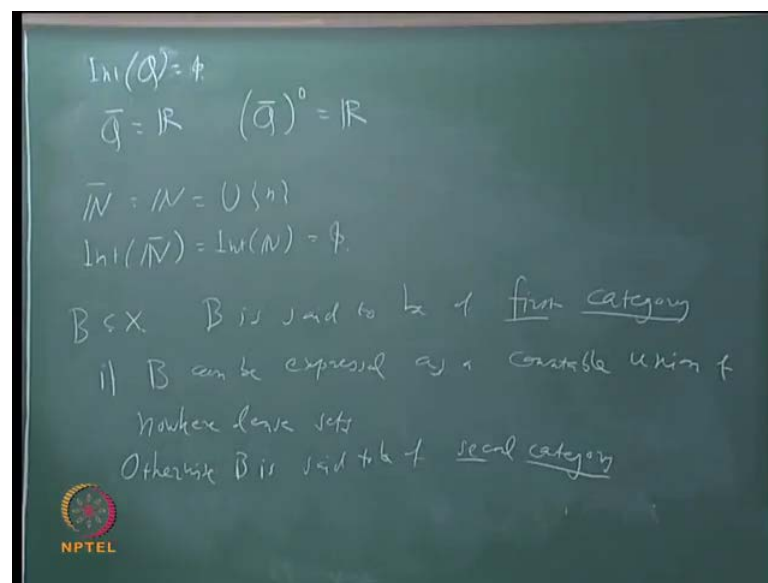 Int(Q) = ϕ.
Q̄ = ℝ (Q̄)⁰ = ℝ
N̄ = ℕ = ∪ {n}
Int(N̄) = Int(ℕ) = ϕ.
B ⊆ X. B is said to be of first category
if B can be expressed as a countable union of
nowhere dense sets
Otherwise B is said to be of second category
NPTEL